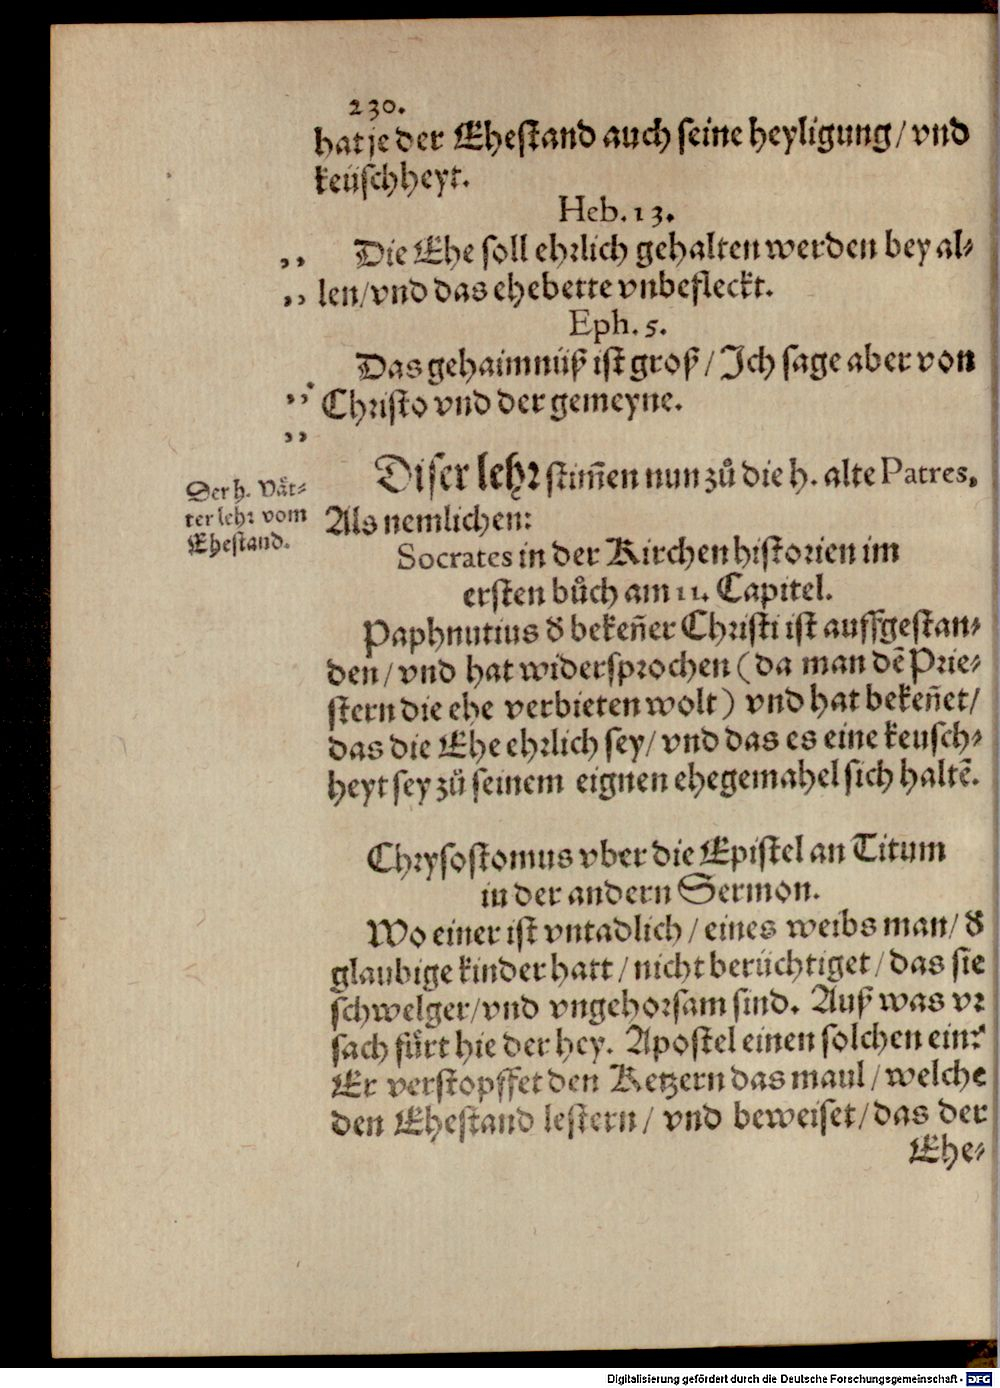 230.
hat je der Ehestand auch seine heyligung/ vnd
keüschheyt.
Heb. 13.
,, Die Ehe soll ehrlich gehalten werden bey al-
,, len/vnd das ehebette vnbefleckt.
Eph. 5.
Das gehaimnüß ist groß/ Ich sage aber von
,, Christo vnd der gemeyne.
,,
Diser lehr stim̃en nun zů die h. alte Patres,
Der h. Vät-
ter lehr vom
Ehestand.
Als nemlichen:
Socrates in der Kirchenhistorien im
ersten bůch am 11. Capitel.
Paphnutius d̕ bekeñer Christi ist auffgestan-
den/ vnd hat widersprochen (da man dẽ Prie-
stern die ehe verbieten wolt) vnd hat bekeñet/
das die Ehe ehrlich sey/ vnd das es eine keusch-
heyt sey zů seinem eignen ehegemahel sich haltẽ.
Chrysostomus vber die Epistel an Titum
in der andern Sermon.
Wo einer ist vntadlich/ eines weibs man/ d̕
glaubige kinder hatt/ nicht berüchtiget/ das sie
schwelger/vnd vngehorsam sind. Auß was vr
sach fürt hie der hey. Apostel einen solchen ein?
Er verstopffet den Ketzern das maul/ welche
den Ehestand lestern/ vnd beweiset/ das der
Ehe-
Digitalisierung gefördert durch die Deutsche Forschungsgemeinschaft - DFG